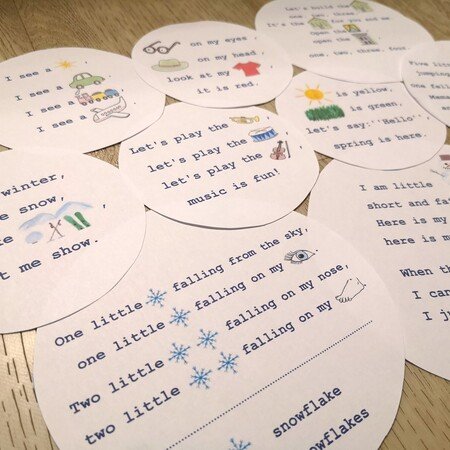 Let's build the
one, two, three.
It's the for you and me.
open the
open the
one, two, three, four.
on my eyes,
on my head,
look at my
it is red.
I see a
I see a
I see a
I see a
Five little
jumping
one fell
is yellow,
is green,
let's say: "Hello"
spring is here.
Let's play the
let's play the
let's play the
music is fun!
winter,
snow,
me show.
I am little
short and
Here is my
here is my
When
I
I
One little falling from the sky,
one little falling on my .
Two little falling on my nose,
two little falling on my
snowflake